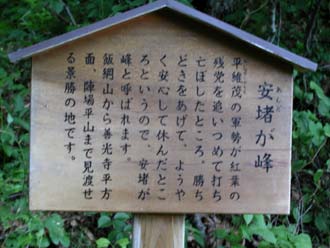 安堵が峰
あんど みね
平維茂の軍勢が紅葉の
残党を追いつめて打ち
亡ぼしたところ、勝ち
どきをあげて、ようや
く安心して休んだとこ
ろというので、安堵が
峰と呼ばれます。
飯綱山から善光寺平方
面、陣場平山まで見渡せ
る景勝の地です。